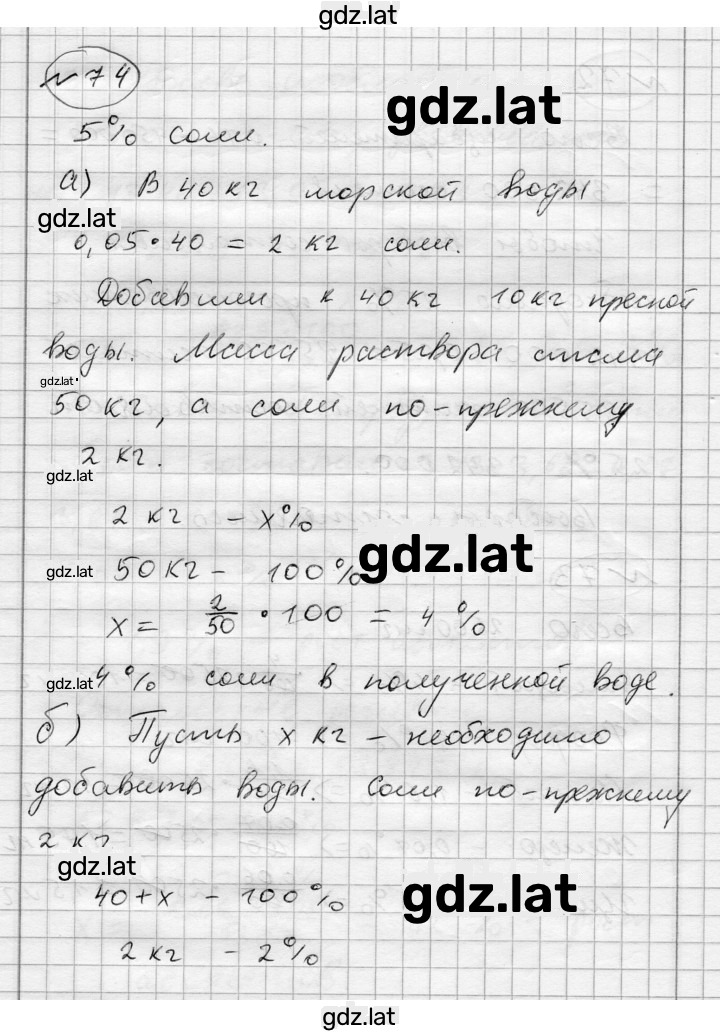 gdz.lat
№74
gdz.lat
5% соли.
а) В 40 кг морской воды
gdz.lat
0,05·40 = 2 кг соли.
Добавили к 40 кг 10 кг пресной
воды. Масса раствора стала
gdz.lat
50 кг, а соли по-прежнему
2 кг.
gdz.lat
2 кг - x%
gdz.lat
gdz.lat 50 кг - 100%
x = 2/50 · 100 = 4%
gdz.lat 4% соли в полученной воде.
б) Пусть x кг - необходимо
добавить воды. Соли по-прежнему
2 кг
gdz.lat
40+x - 100%
gdz.lat
2 кг - 2%
gdz.lat